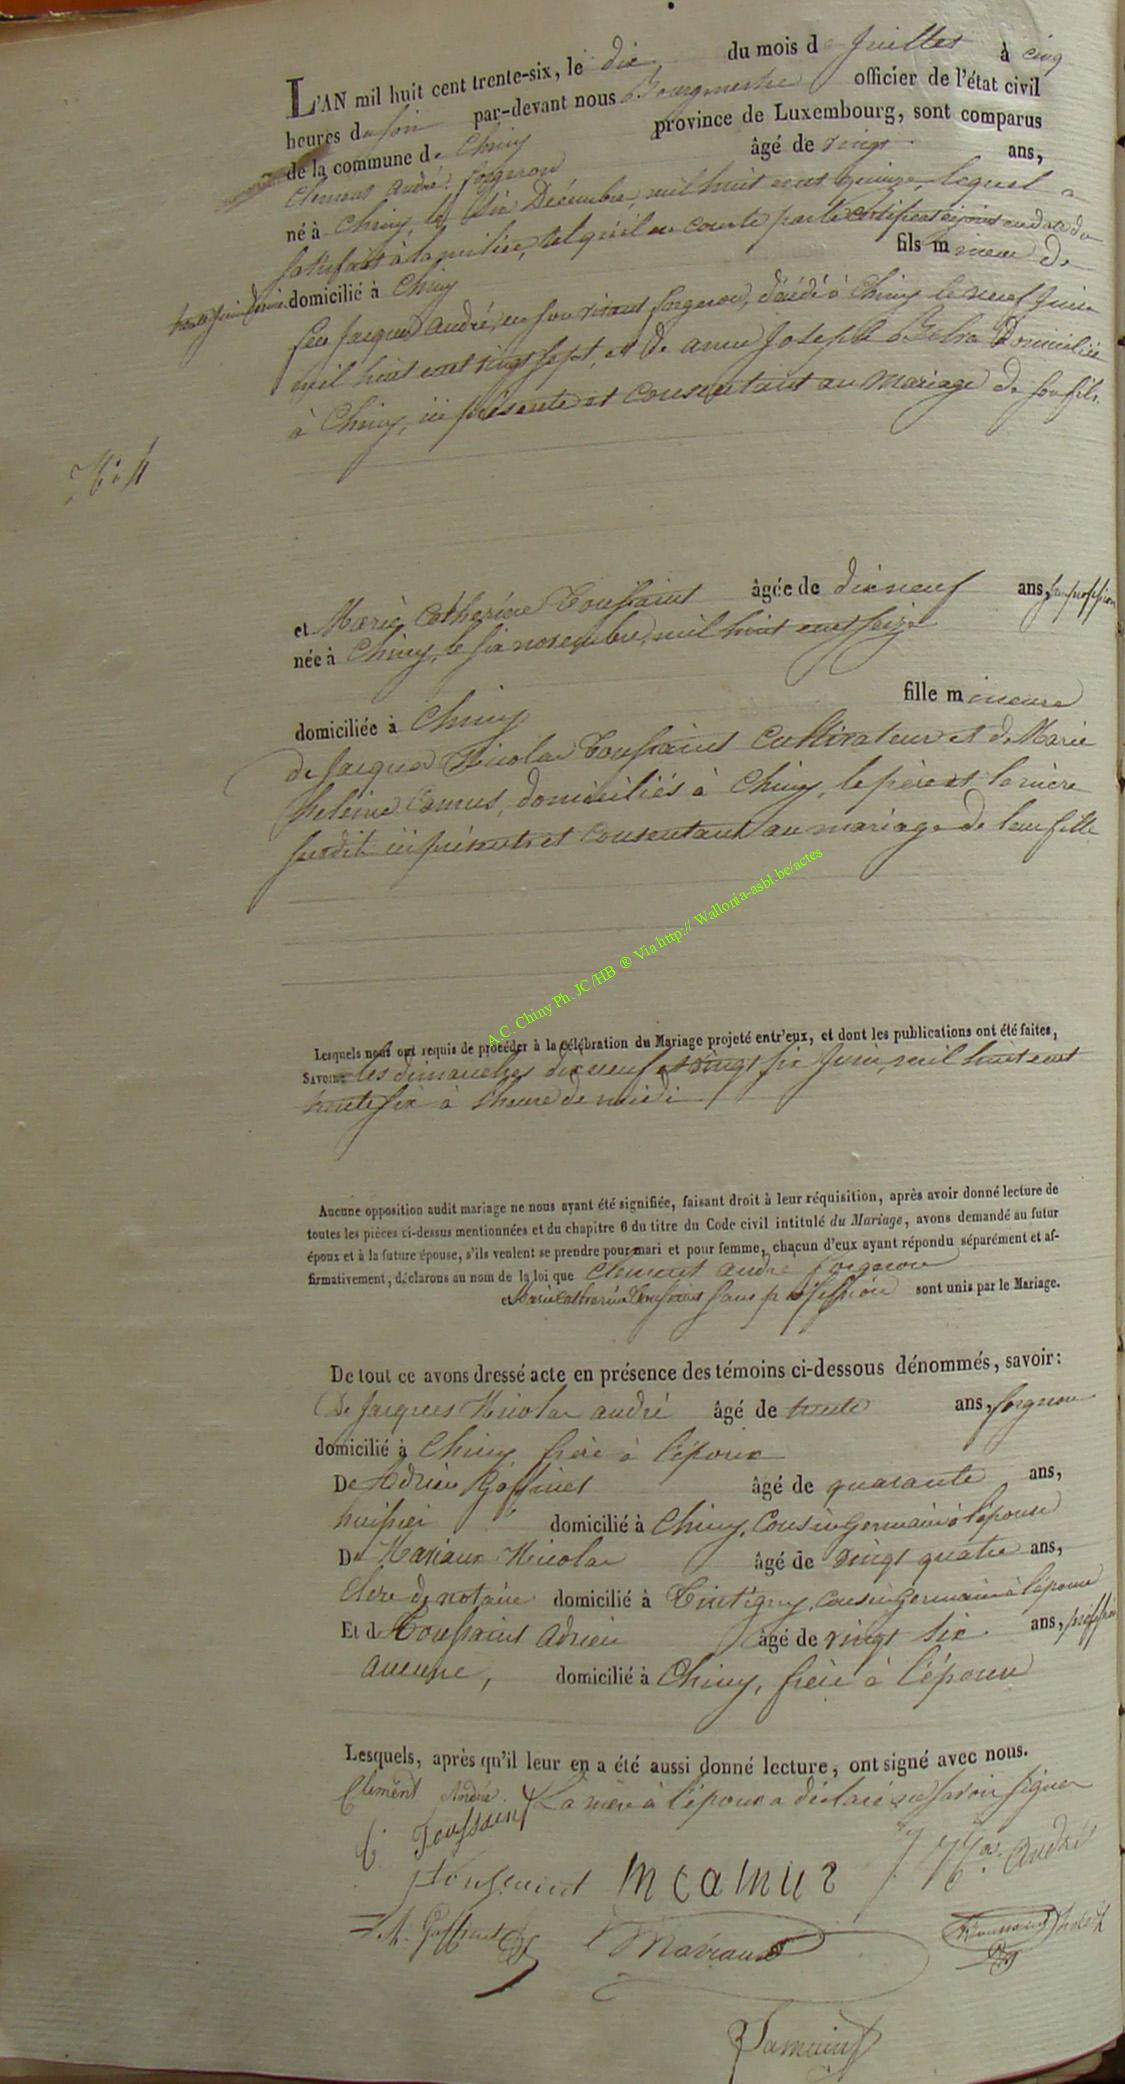 L'AN mil huit cent trente-six, le dix du mois de Juillet à cinq
heures du soir par-devant nous Bourgmestre officier de l'état civil
de la commune de Chiny province de Luxembourg, sont comparus
Clement André forgeron âgé de vingt ans,
né à Chiny, le dix Décembre, mil huit cent quinze, lequel a
satisfait à la milice, tel qu'il en conste par le certificat ci joint en date du
trente Juin dernier. domicilié à Chiny fils mineur de
feu Jacques André, en son vivant forgeron, décédé à Chiny le neuf Juin
mil huit cent vingt sept, et de anne Joseph domiciliée
à Chiny, ici présente et consentant au mariage de son fils.
N° 4
et Marie Catherine Toussaint âgée de dix neuf ans, sans profession
née à Chiny, le six novembre, mil huit cent seize
domiciliée à Chiny fille mineure
de Jacques Nicolas Toussaint Cultivateur et de Marie
Heleine Camus, domiciliés à Chiny, le père et la mère
susdit ici présents et consentant au mariage de leur fille
A.C. Chiny Ph. JC/HB ® Via http:// Wallonia-asbl.be/actes
Lesquels nous ont requis de procéder à la célébration du Mariage projeté entr'eux, et dont les publications ont été faites,
SAVOIR: les dimanches dix neuf et vingt six Juin, mil huit cent
trente six à l'heure de midi
Aucune opposition audit mariage ne nous ayant été signifiée, faisant droit à leur réquisition, après avoir donné lecture de
toutes les pièces ci-dessus mentionnées et du chapitre 6 du titre du Code civil intitulé du Mariage, avons demandé au futur
époux et à la future épouse, s'ils veulent se prendre pour mari et pour femme, chacun d'eux ayant répondu séparément et af-
firmativement, déclarons au nom de la loi que Clement André forgeron
et Marie Catherine Toussaint sans profession sont unis par le Mariage.
De tout ce avons dressé acte en présence des témoins ci-dessous dénommés, savoir:
De Jacques Nicolas andré âgé de trente ans, forgeron
domicilié à Chiny frère à l'époux
De Adrien Goffinet âgé de quarante ans,
huissier domicilié à Chiny, Cousin Germain à l'épouse
De Mariaux Nicolas âgé de vingt quatre ans,
Clerc de notaire domicilié à Tintigny, cousin Germain à l'épouse
Et de Toussaint Adrien âgé de vingt six ans, profession
aucune, domicilié à Chiny, frère à l'épouse
Lesquels, après qu'il leur en a été aussi donné lecture, ont signé avec nous.
Clément André. La mère à l'époux a déclaré ne savoir signer
C. Toussaint
Toussaint m camus J. N.as André
A. Goffinet Mariaux